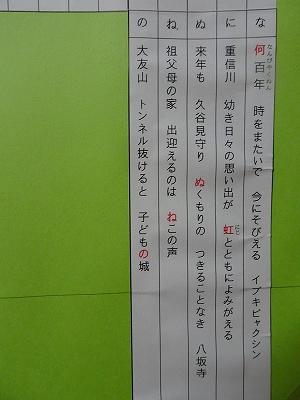 な 何百年 時をまたいで 今にそびえる イブキビャクシン
なんびゃくねん
に 重信川 幼き日々の思い出が 虹とともによみがえる
にじ
ぬ 来年も 久谷見守り ぬくもりの つきることなき 八坂寺
ね 祖父母の家 出迎えるのは ねこの声
の 大友山 トンネル抜けると 子どもの城